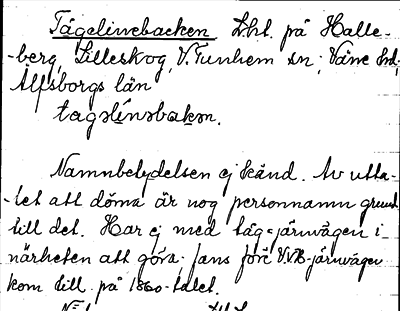 Tågelinebacken Lht. på Halle-
-berg, Lilleskog, V. Tunhem sn; Väne hd,
Älfsborgs län
tagəlínəbakən.
Namnbetydelsen ej känd. Av utta-
-let att döma är nog personnamn grund
till det. Har ej med tåg-järnvägen i
närheten att göra; fans före V.V.B-järnvägen
kom till på 1860-talet.